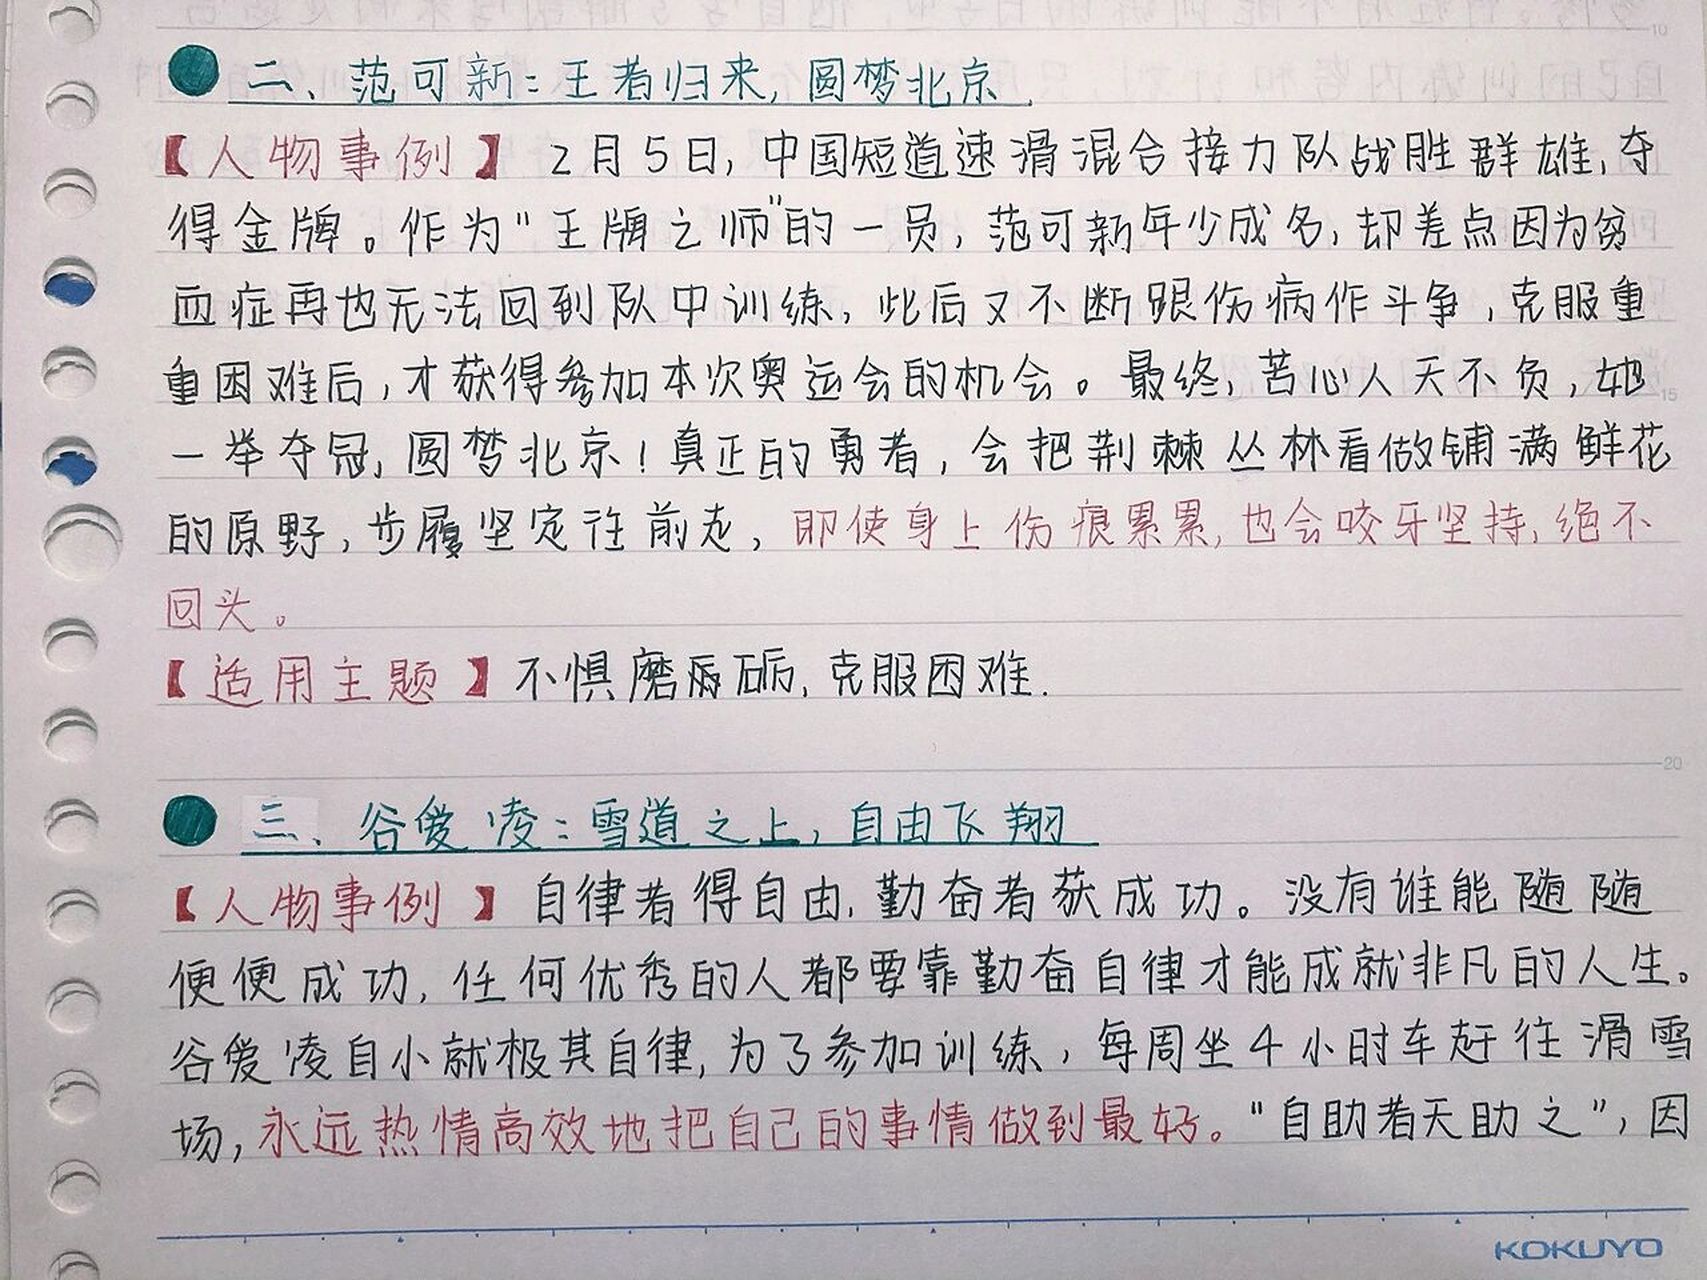 二、范可新:王者归来,圆梦北京.
【人物事例】 2月5日,中国短道速滑混合接力队战胜群雄,夺
得金牌。作为"王牌之师"的一员,范可新年少成名,却差点因为贫
血症再也无法回到队中训练,此后又不断跟伤病作斗争,克服重
重困难后,才获得参加本次奥运会的机会。最终,苦心人天不负,她
一举夺冠,圆梦北京!真正的勇者,会把荆棘丛林看做铺满鲜花
的原野,步履坚定往前走,即使身上伤痕累累,也会咬牙坚持,绝不
回头。
【适用主题】不惧磨砺,克服困难.
20
三、谷爱凌:雪道之上,自由飞翔
【人物事例】自律者得自由,勤奋者获成功。没有谁能随随
便便成功,任何优秀的人都要靠勤奋自律才能成就非凡的人生。
谷爱凌自小就极其自律,为了参加训练,每周坐4小时车赶往滑雪
场,永远热情高效地把自己的事情做到最好。"自助者天助之",因
KOKUYO